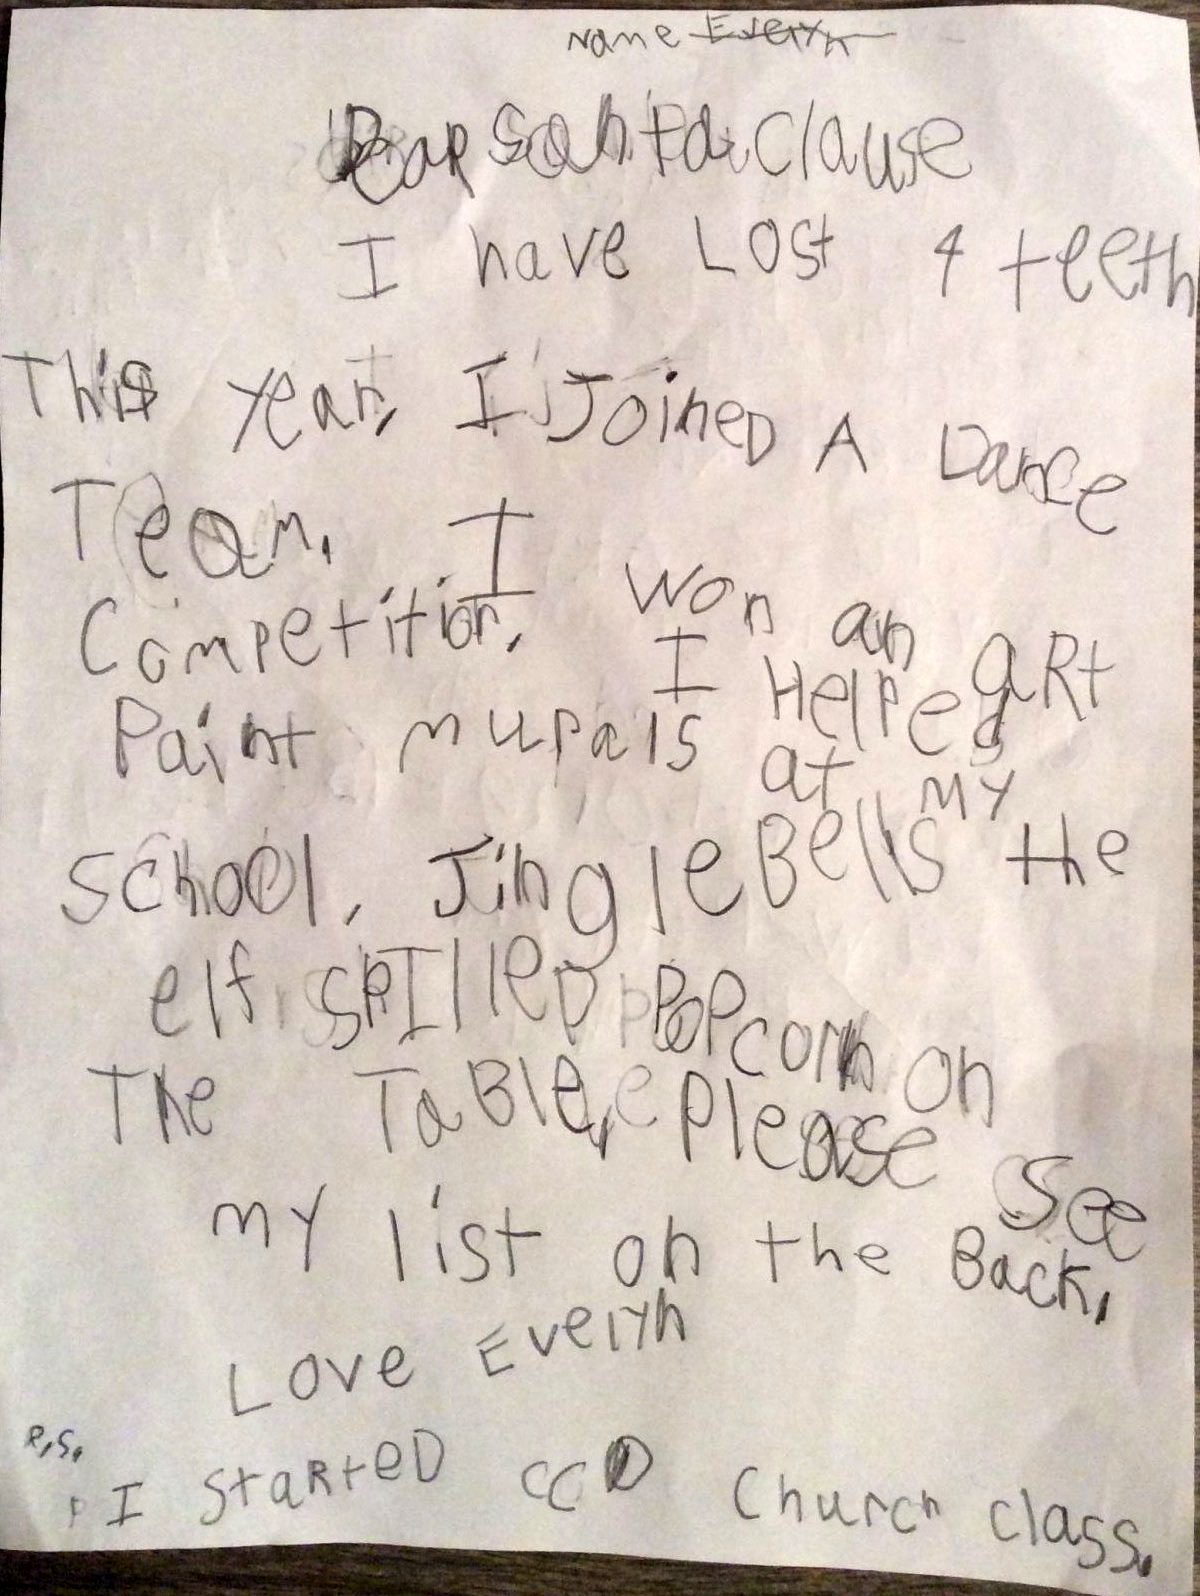 Name Evelyn
Dear Santa Clause
I have Lost 4 teeth
This year, I Joined A Dance
Team. I won an aRt
Competition. I Helped
Paint murals at my
School, Jingle Bells the
elf SPIlled POPcorn on
The TaBle, Please See
my list on the Back,
Love Evelyn
P.S.
I StaRteD CCD Church class.